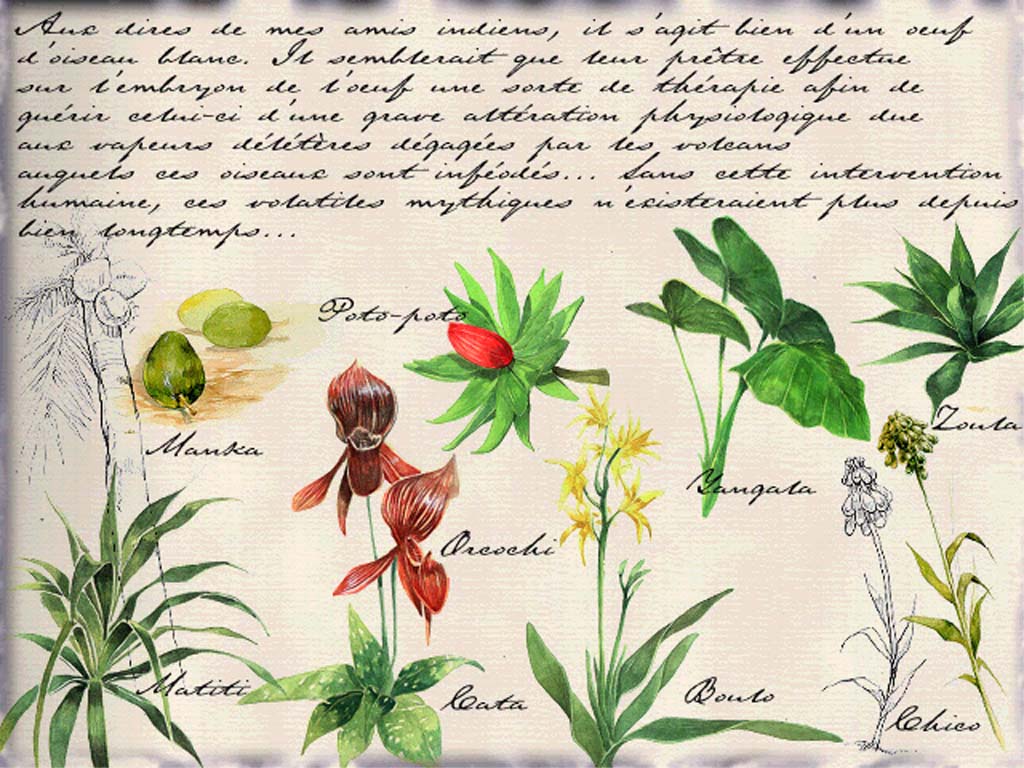 Aux dires de mes amis indiens, il s'agit bien d'un oeuf
d'oiseau blanc. Il semblerait que leur prêtre effectue
sur l'embryon de l'oeuf une sorte de thérapie afin de
guérir celui-ci d'une grave altération physiologique due
aux vapeurs délétères dégagées par les volcans
auquels ces oiseaux sont inféodés... Sans cette intervention
humaine, ces volatiles mythiques n'existeraient plus depuis
bien longtemps...
Poto-poto
Manka
Zoula
Yangala
Orcochi
Matiti
Cata
Boulo
Chico